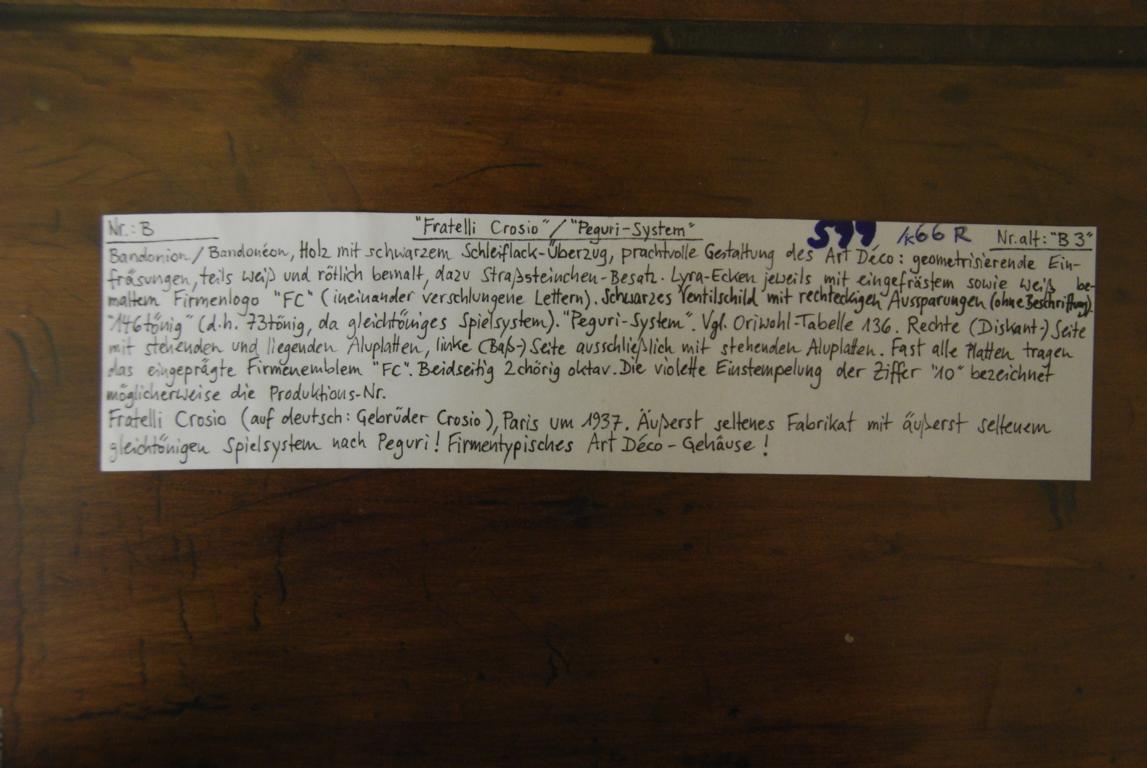 Nr.: B "Fratelli Crosio" / "Peguri-System" 599 /k66 R Nr. alt: "B 3"
Bandonion / Bandonéon, Holz mit schwarzem Schleiflack-Überzug, prachtvolle Gestaltung des Art Déco: geometrisierende Ein-
fräsungen, teils weiß und rötlich bemalt, dazu Straßsteinchen-Besatz. Lyra-Ecken jeweils mit eingefrästem sowie weiß be-
maltem Firmenlogo "FC" (ineinander verschlungene Lettern). Schwarzes Ventilschild mit rechteckigen Aussparungen (ohne Beschriftung).
"146tönig" (d.h. 73tönig, da gleichtöniges Spielsystem). "Peguri-System". Vgl. Oriwohl-Tabelle 136. Rechte (Diskant-) Seite
mit stehenden und liegenden Aluplatten, linke (Baß-) Seite ausschließlich mit stehenden Aluplatten. Fast alle Platten tragen
das eingeprägte Firmenemblem "FC". Beidseitig 2chörig oktav. Die violette Einstempelung der Ziffer "10" bezeichnet
möglicherweise die Produktions-Nr.
Fratelli Crosio (auf deutsch: Gebrüder Crosio), Paris um 1937. Äußerst seltenes Fabrikat mit äußerst seltenem
gleichtönigen Spielsystem nach Peguri! Firmentypisches Art Déco - Gehäuse!